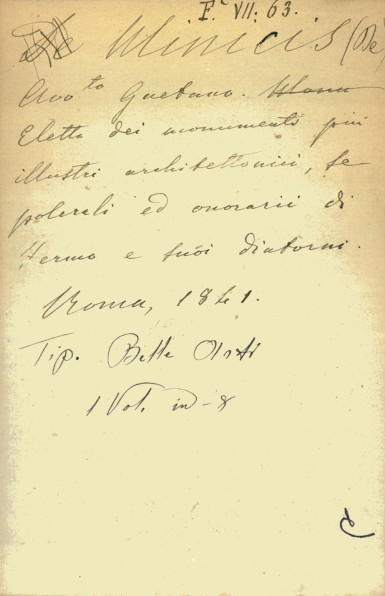 F. VII. 63.
De Minicis (De)
Avv.to Gaetano. Monu
Eletta dei monumenti più
illustri architettonici, se
polcrali ed onorarii di
Fermo e suoi dintorni.
Roma, 1841.
Tip. Belle Arti
1 Vol. in-8